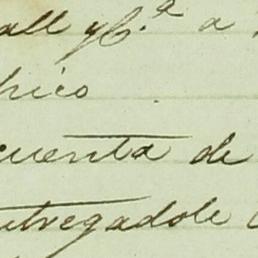 all y C.ª a
hico
cuenta de
ntregadole